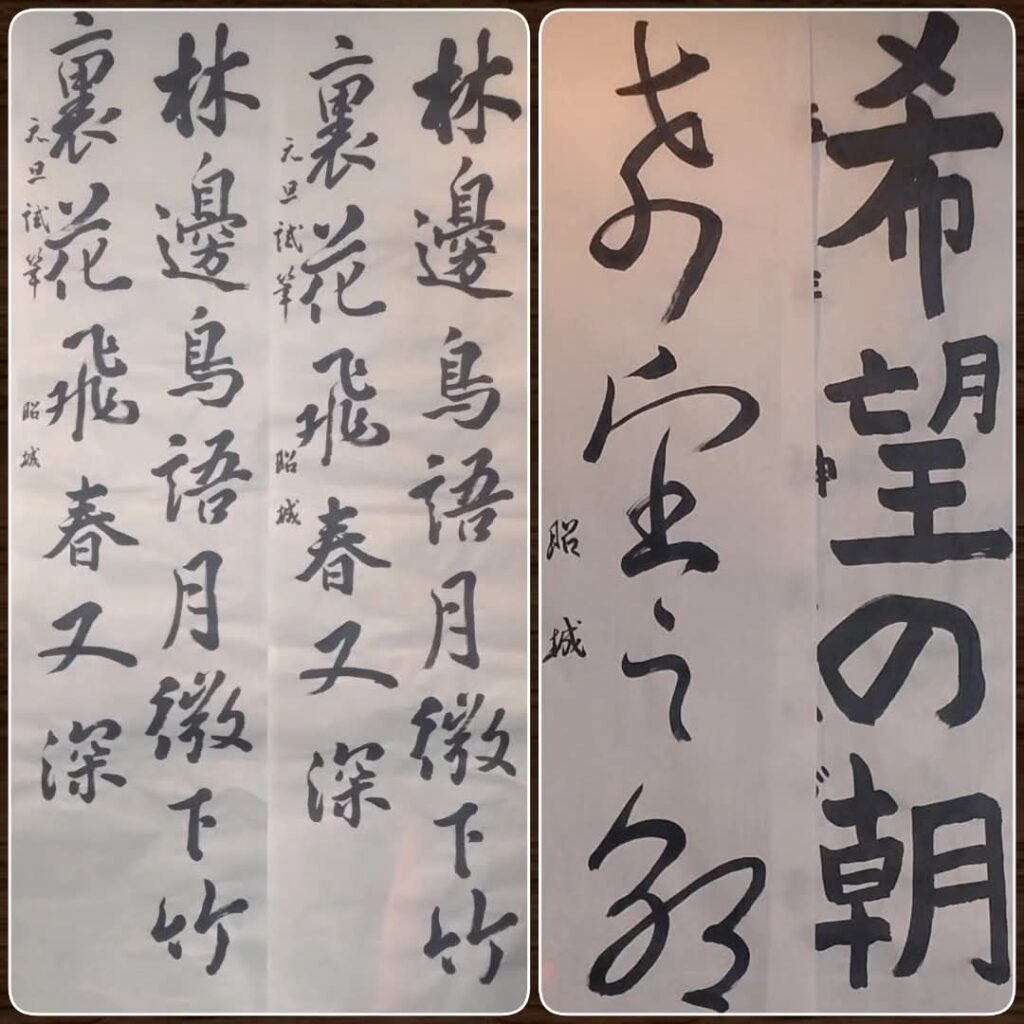 林邊鳥語月微下竹
裏花飛春又深
元旦試筆 昭城
林邊鳥語月微下竹
裏花飛春又深
元旦試筆 昭城
希望の朝
希望之朝
昭城